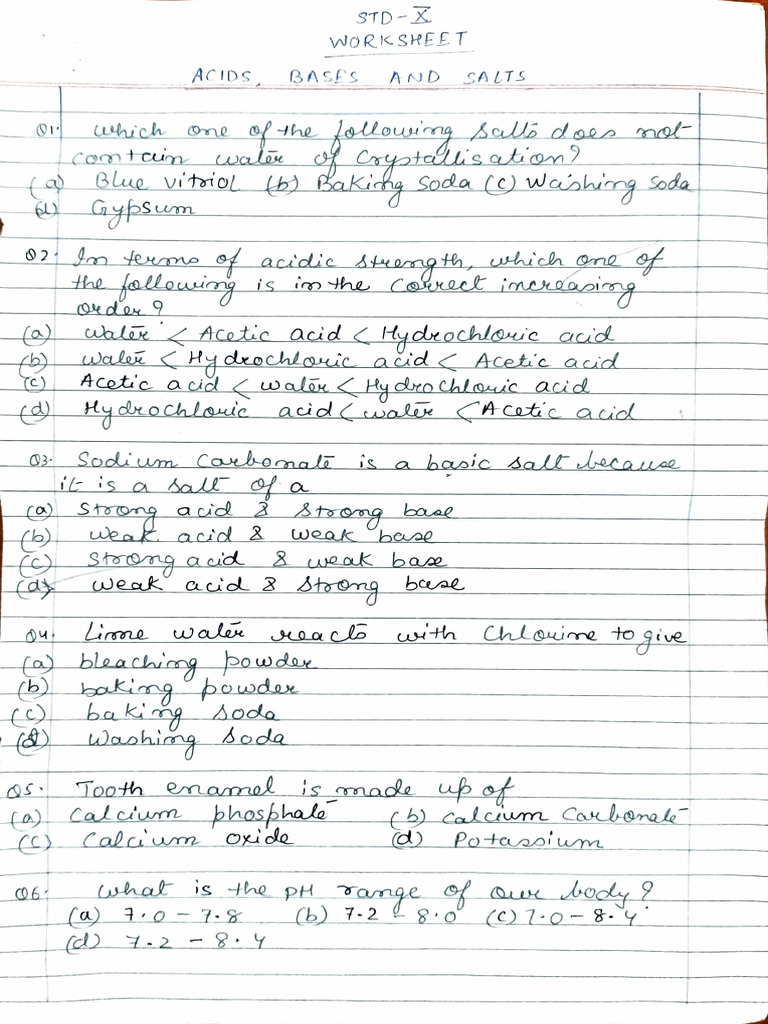 STD-X
WORKSHEET
ACIDS, BASES AND SALTS
Q1. Which one of the following salts does not
contain water of Crystallisation?
(a) Blue vitriol (b) Baking soda (c) Washing soda
(d) Gypsum
Q2. In terms of acidic strength, which one of
the following is in the correct increasing
order?
(a) water < Acetic acid < Hydrochloric acid
(b) water < Hydrochloric acid < Acetic acid
(c) Acetic acid < water < Hydrochloric acid
(d) Hydrochloric acid < water < Acetic acid
Q3. Sodium carbonate is a basic salt because
it is a salt of a
(a) Strong acid & strong base
(b) weak acid & weak base
(c) strong acid & weak base
(d) weak acid & strong base
Q4. Lime water reacts with Chlorine to give
(a) bleaching powder
(b) baking powder
(c) baking soda
(d) washing soda
Q5. Tooth enamel is made up of
(a) Calcium phosphate (b) Calcium Carbonate
(c) Calcium oxide (d) Potassium
Q6. What is the pH range of our body?
(a) 7.0 - 7.8 (b) 7.2 - 8.0 (c) 7.0 - 8.4
(d) 7.2 - 8.4